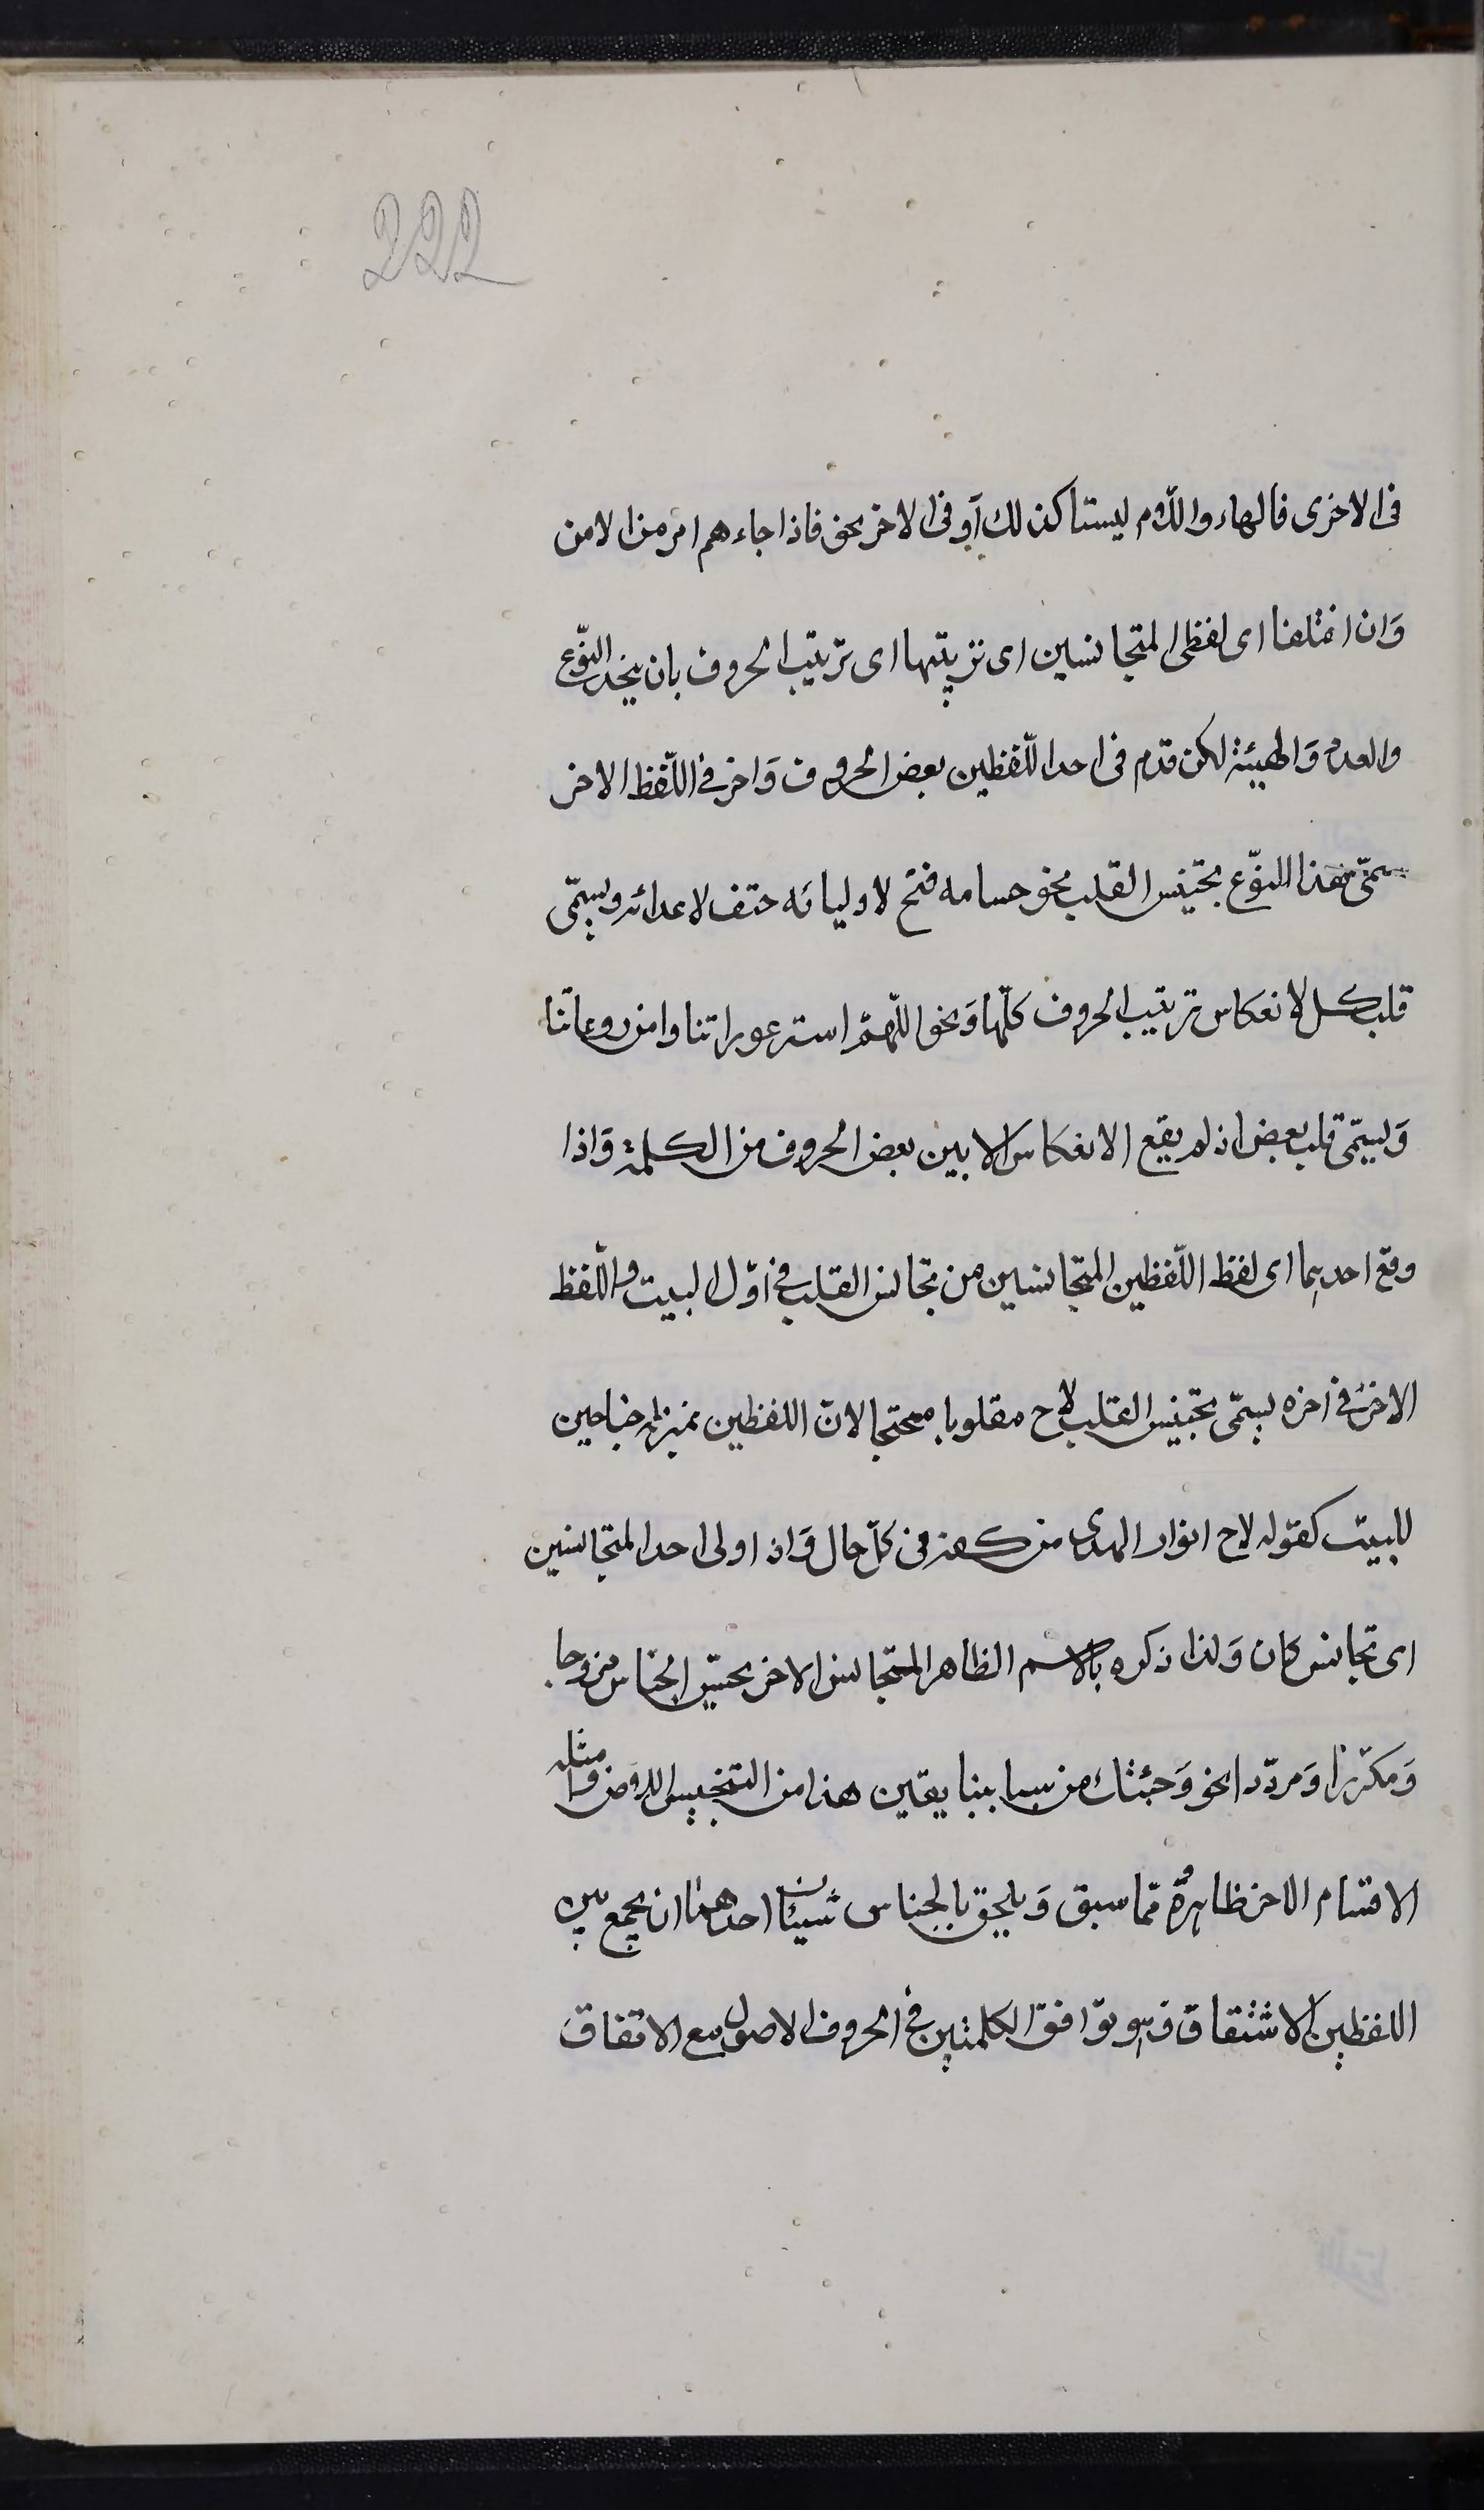 222
فی الاخری فالهاء واللام لیستا کذلک او فی الاخر نحو فاذا جاءهم امر من الامن
وَان اختلفا ای لفظی المتجانسین ای ترتیبها ای ترتیب الحروف بان یتحد النّوع
والعدد وَالهیئة لکن قدّم فی احد اللّفظین بعض الحروف وَاخر فی اللّفظ الاخر
سمّی هذا النّوع تجنیس القلب نحو حسامه فتح لاولیائه حتف لاعدائه ویسمّی
قلب کل لانعکاس ترتیب الحروف کلّها وَنحو اللّهمّ استر عوراتنا وامن روعاتنا
وَیسمّی قلب بعض اذ لم یقع الانعکاس الا بین بعض الحروف من الکلمة وَاذا
وقع احدهما ای لفظ اللّفظین المتجانسین من تجانس القلب فی اوّل البیت واللّفظ
الاخر فی اخره یسمّی تجنیس القلب لاح مقلوبا مجنحا لانّ اللفظین بمنزلة جناحین
للبیت کقوله لاح انوار الهدی من کفه فی کلّ حال وَاذا ولی احد المتجانسین
ای تجانس کان وَلذا ذکره بالاسم الظاهر المتجانس الاخر یسمّی الجناس مزدوجا
وَمکرّرا وَمردّدا نحو وَجئتک من سبا بنبا یقین هذا من التجنیس اللاحق وامثله
الاقسام الاخر ظاهرة ممّا سبق وَیلحق بالجناس شیئان احدهما ان یجمع بین
اللفظین الاشتقاق فهو توافق الکلمتین فی الحروف الاصول مع الاتفاق